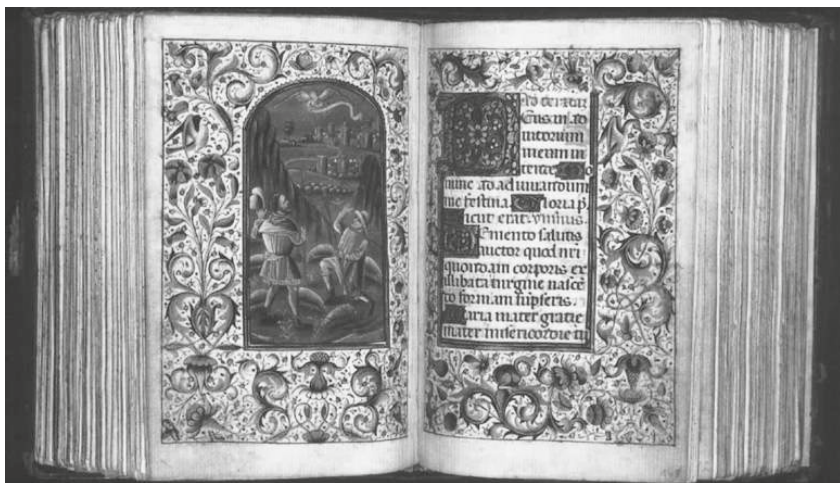 Deus in ad
iutorium
meum in
tende
mine ad adiuuandum
me festina. Gloria p
Sicut erat.
Memento salutis
auctor quod nri
quondam corporis ex
illibata uirgine nascē
do formam sumpseris.
Maria mater gratie
mater misericordie tu